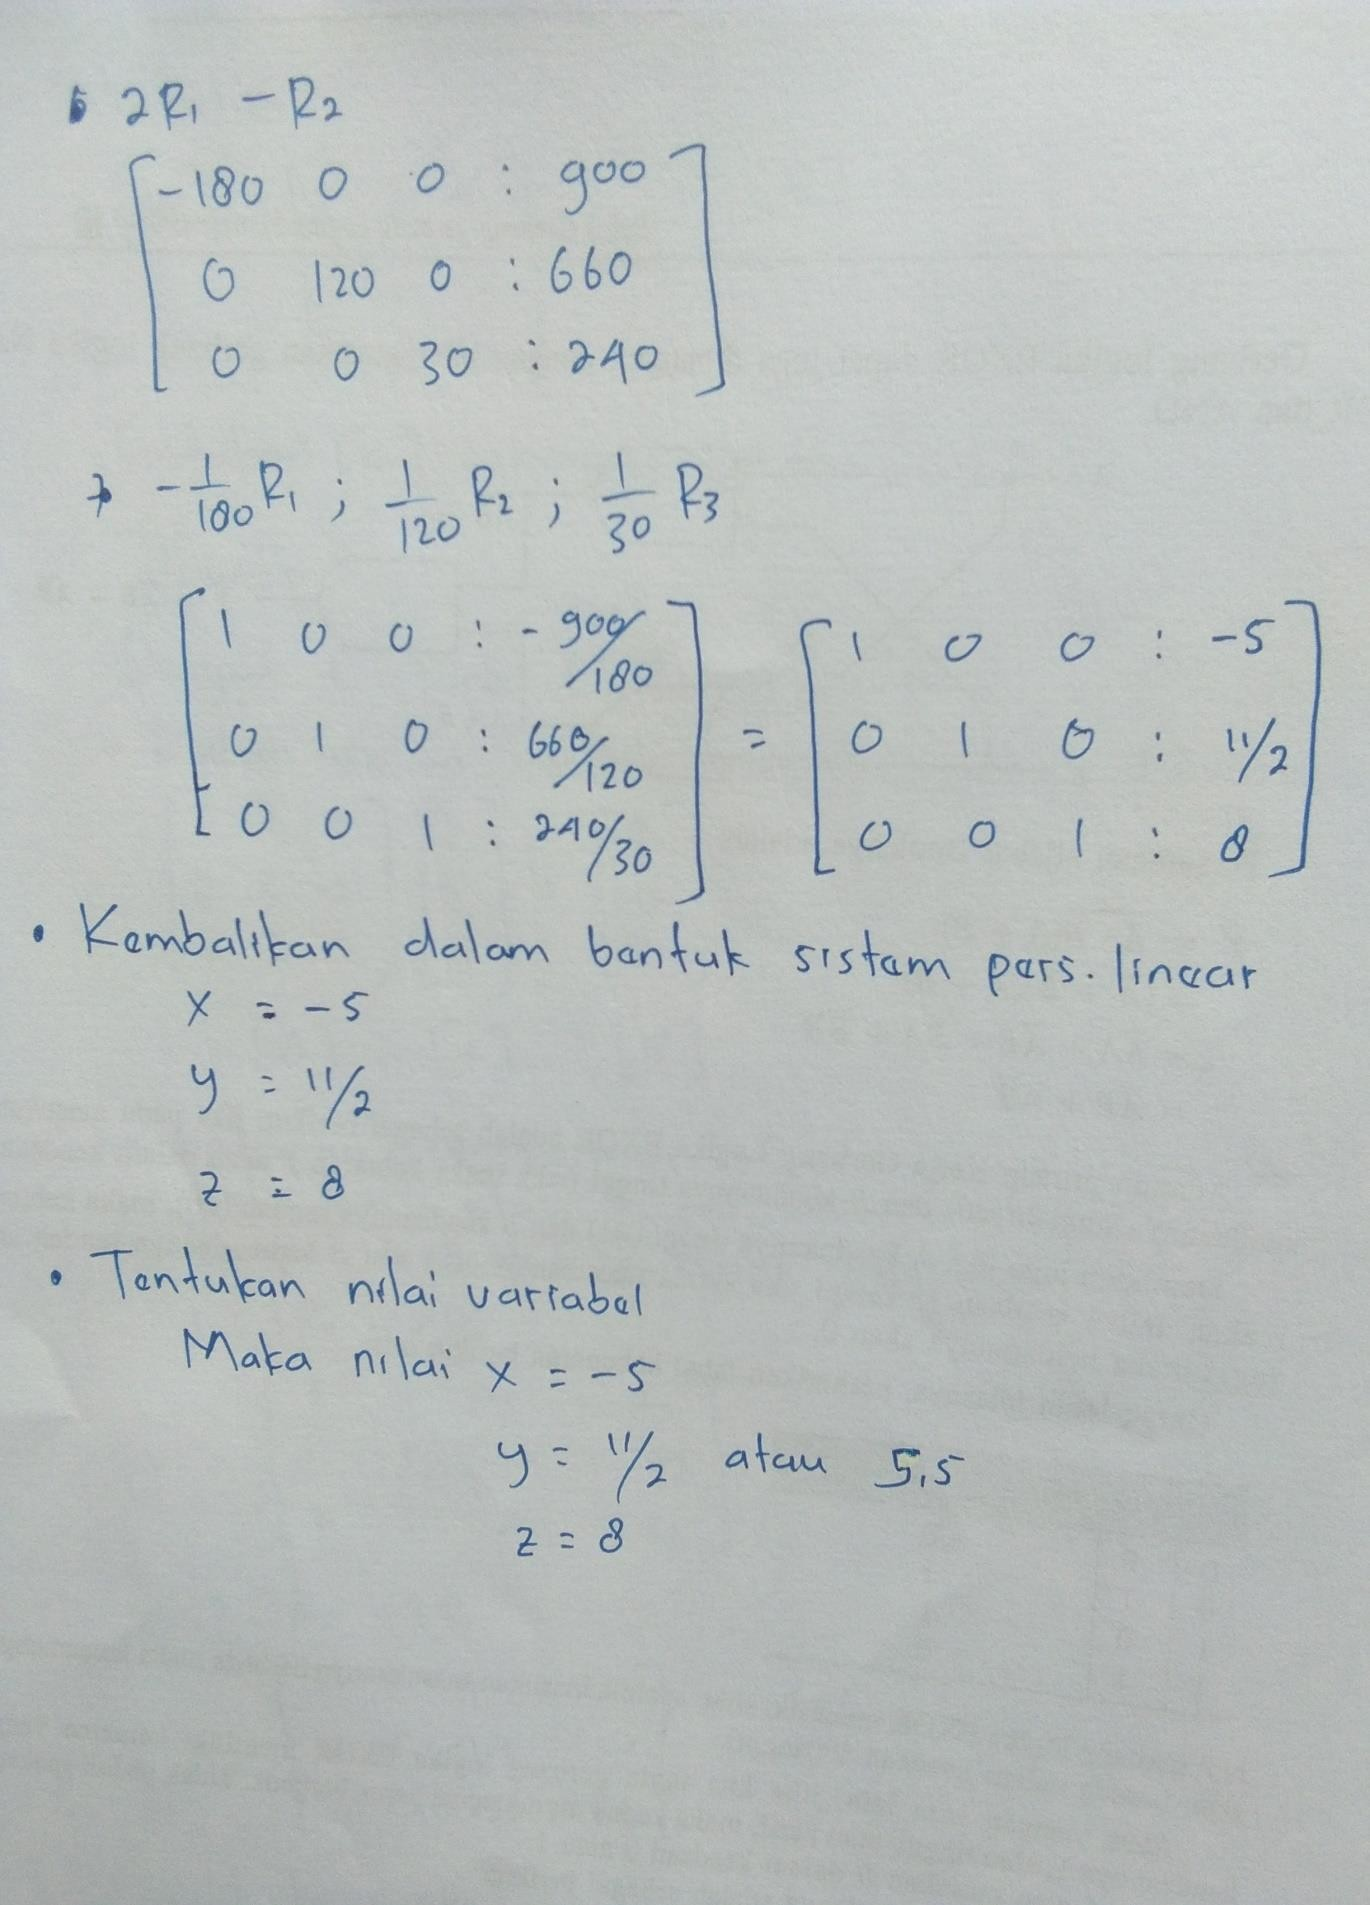 • 2R₁ - R₂
[ -180 0 0 : 900 ]
[ 0 120 0 : 660 ]
[ 0 0 30 : 240 ]
→ -1/180 R₁ ; 1/120 R₂ ; 1/30 R₃
[ 1 0 0 : -900/180 ] = [ 1 0 0 : -5 ]
[ 0 1 0 : 660/120 ] [ 0 1 0 : 11/2 ]
[ 0 0 1 : 240/30 ] [ 0 0 1 : 8 ]
• Kembalikan dalam bentuk sistem pers. linear
x = -5
y = 11/2
z = 8
• Tentukan nilai variabel
Maka nilai x = -5
y = 11/2 atau 5,5
z = 8